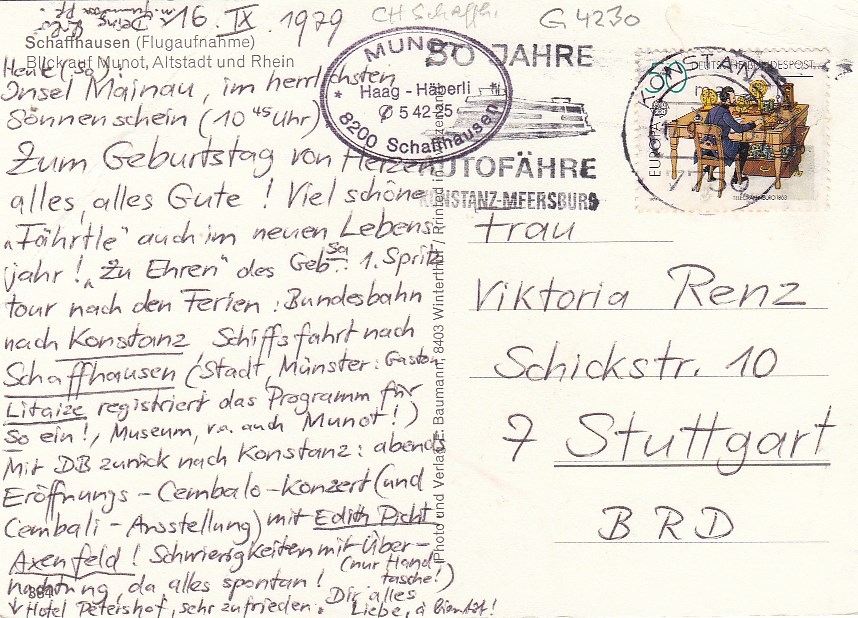 16. IX. 1979
CH Schaffh.
G 4230
Schaffhausen (Flugaufnahme)
Blick auf Munot, Altstadt und Rhein
Heute (So):
Insel Mainau, im herrlichsten
Sonnenschein (10 45 Uhr)
Zum Geburtstag von Herzen
alles, alles Gute! Viel schöne
„Fährtle" auch im neuen Lebens-
jahr! „Zu Ehren" des Geb. Sa: 1. Spritz
tour nach den Ferien: Bundesbahn
nach Konstanz Schiffsfahrt nach
Schaffhausen (Stadt, Münster: Gaston
Litaize registriert das Programm für
So ein!, Museum, v.a. auch Munot!)
Mit DB zurück nach Konstanz: abends
Eröffnungs-Cembalo-Konzert (und
Cembali-Ausstellung) mit Edith Picht
Axenfeld! Schwierigkeiten mit Über-
nachtung, da alles spontan! (nur Hand
tasche!)
Hotel Petershof, sehr zufrieden. Dir alles
Liebe, à bientôt!
MUNOT
* Haag - Häberli *
✆ 5 42 25
8200 Schaffhausen
50 JAHRE
AUTOFÄHRE
KONSTANZ-MEERSBURG
KONSTANZ
7750
50 DEUTSCHE BUNDESPOST
EUROPA
TELEGRAPHENBÜRO 1863
Photo und Verlag E. Baumann, 8403 Winterthur / Printed in
Frau
Viktoria Renz
Schickstr. 10
7 Stuttgart
BRD